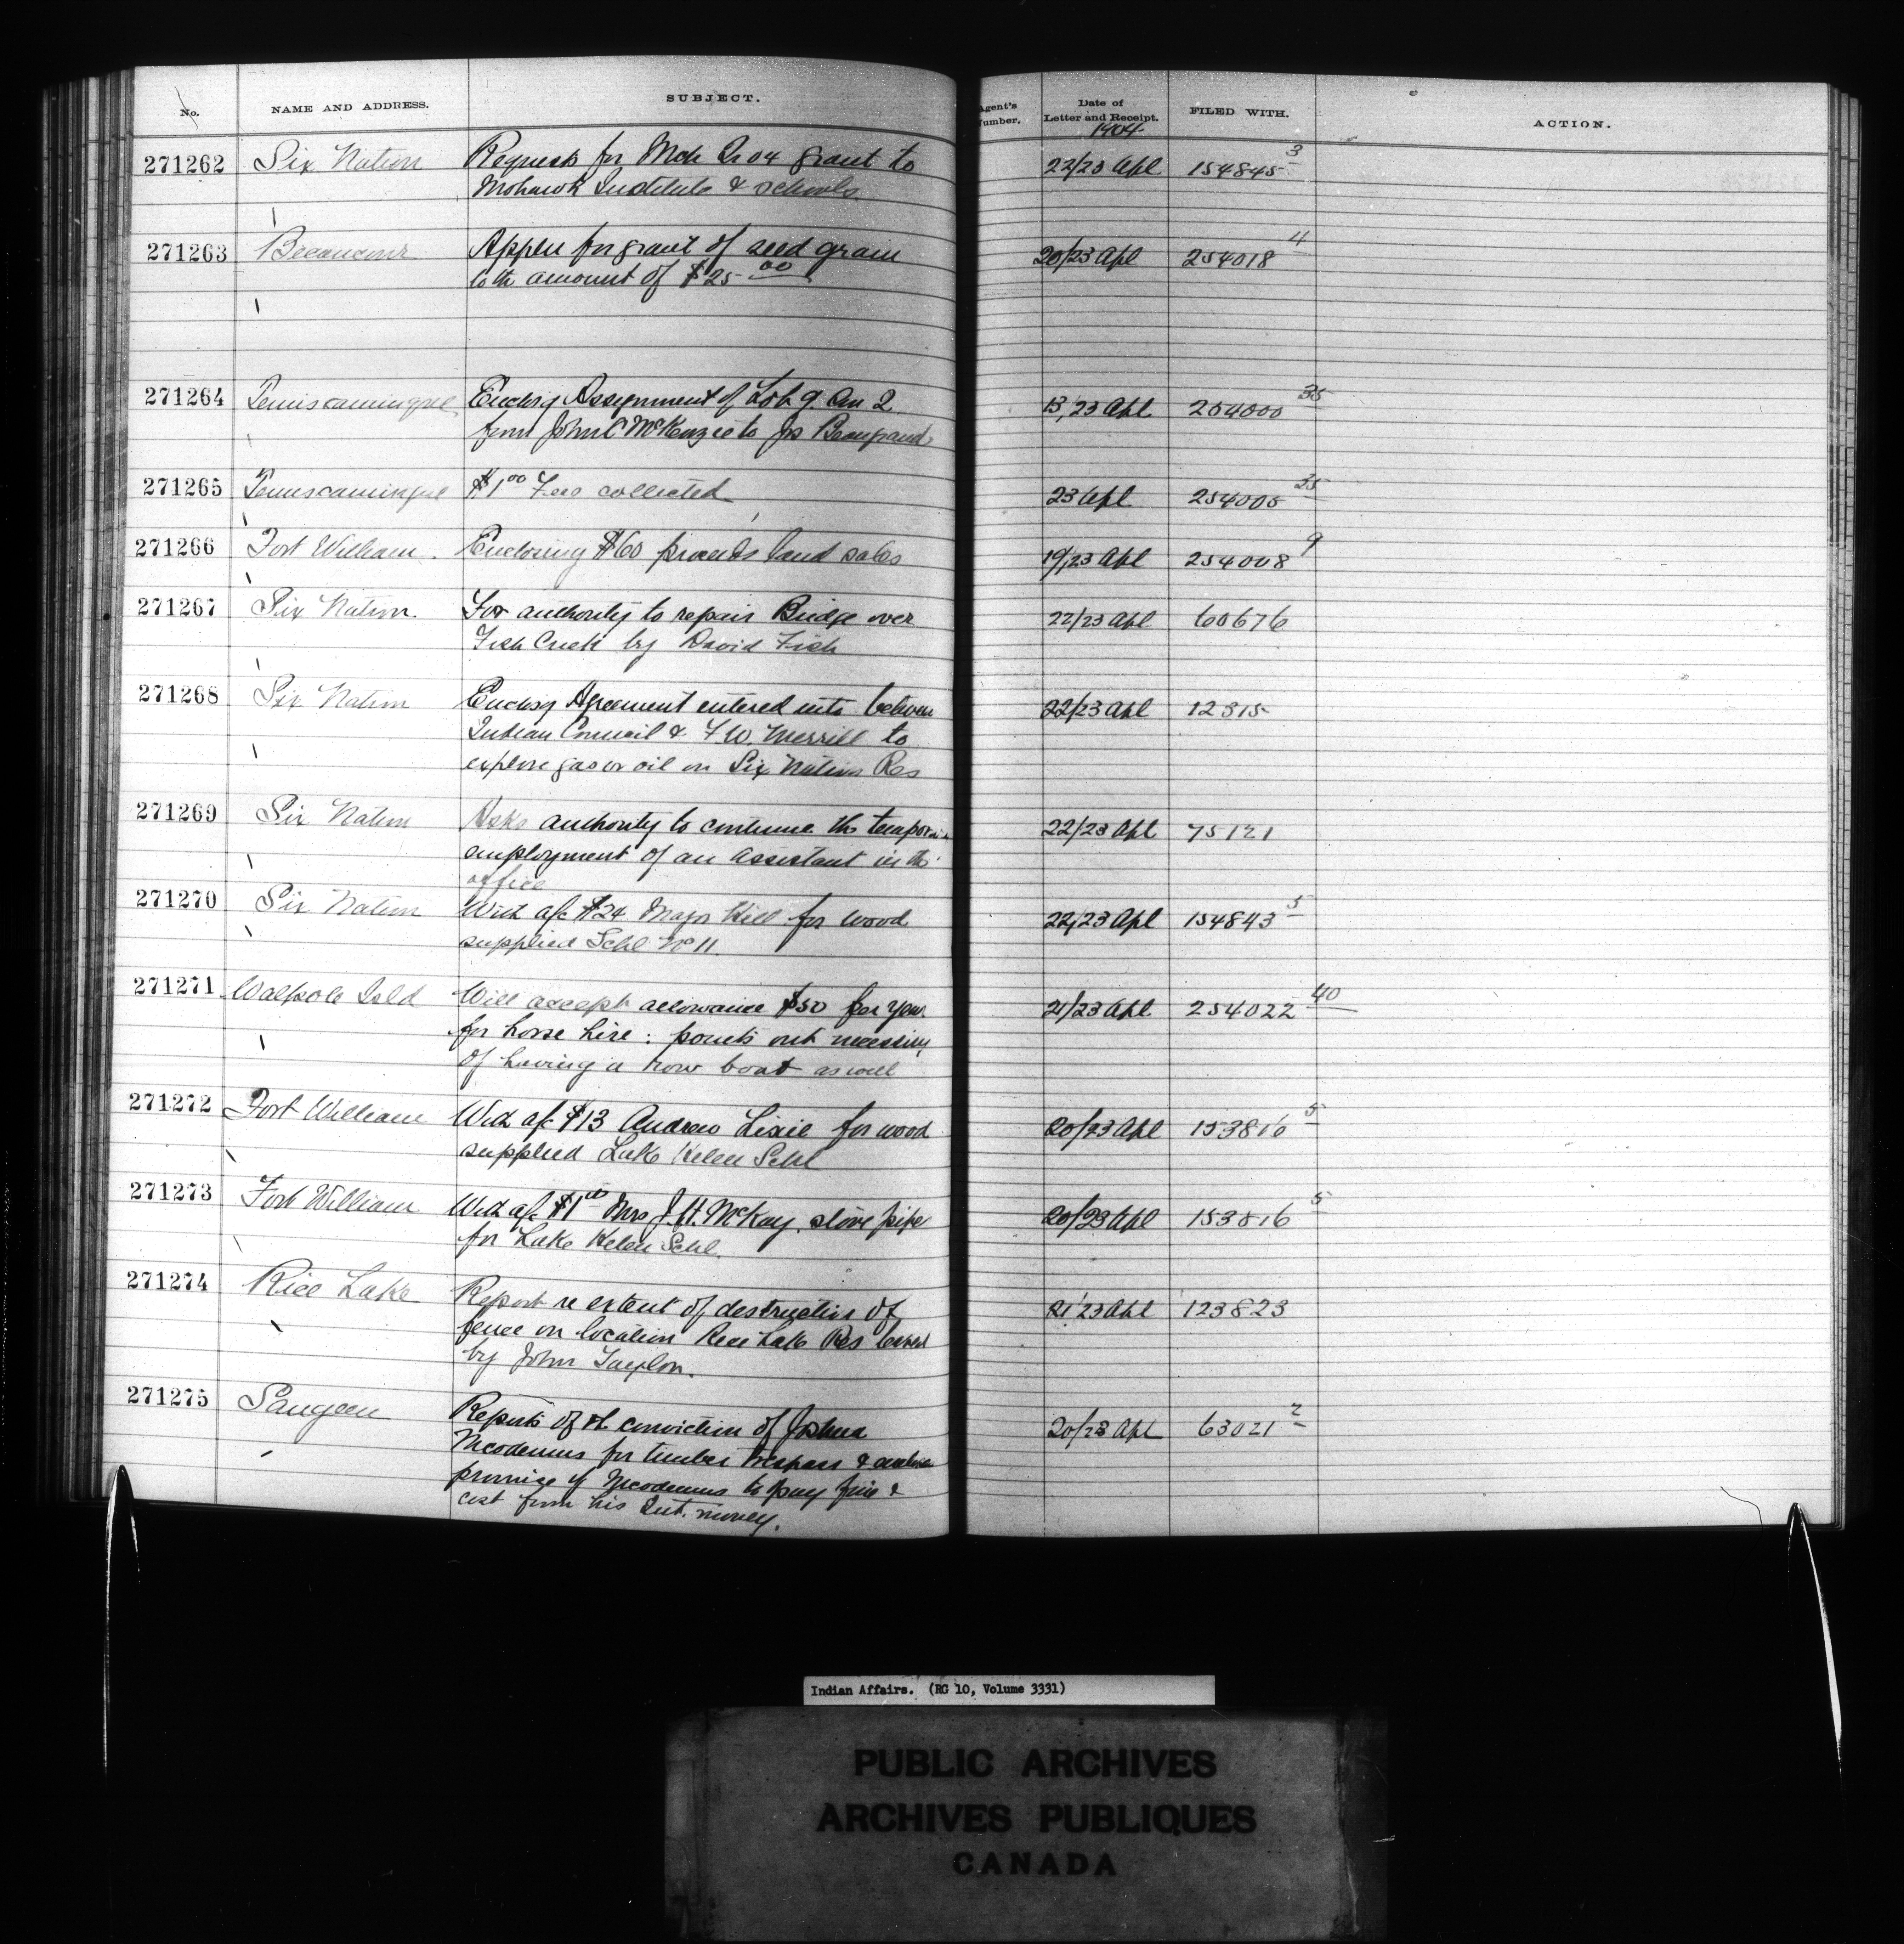 No. NAME AND ADDRESS. SUBJECT. Agent's Number. Date of Letter and Receipt. FILED WITH. ACTION.
1904
271262 Six Nation Requests for Mch Qr 04 grant to 22/23 Apl 154845 3
Mohawk Institute & schools.
271263 Becancour Appln for grant of seed grain 20/23 Apl 254018 4
to th amount of $25 00
271264 Temiscamingue Enclosg Assignment of Lot 9. Con 2 13/23 Apl 254000 35
from John C McKenzie to Jos Beaugrand
271265 Temiscamingue $1 00 Fees collected 23 Apl 254005 35
271266 Fort William. Enclosing $60 proceeds land sales 19/23 Apl 254008 9
271267 Six Nation. For authority to repair Bridge over 22/23 Apl 60676
Fish Creek by David Fish
271268 Six Nation Enclosg Agreement entered into between 22/23 Apl 12315
Indian Council & F W. Merrill to
explore gas or oil on Six Nation Res
271269 Six Nation Asks authority to continue the temporary 22/23 Apl 75121
employment of an assistant in th
office
271270 Six Nation With a/c $24 Major Hill for wood 22/23 Apl 154843 5
supplied Schl No 11.
271271 Walpole Isld Will accept allowance $50 per year 21/23 Apl 254022 40
for horse hire : points out necessity
of having a row boat as well
271272 Fort William With a/c $13 Andrew Lixie for wood 20/23 Apl 153816 5
supplied Lake Helen Schl
271273 Fort William With a/c $1 00 Mrs J. H. McKay. stove pipe 20/23 Apl 153816 5
for Lake Helen Schl.
271274 Rice Lake Report re extent of destruction of 21/23 Apl 123823
fence on location Rice Lake Res leased
by John Taylor.
271275 Saugeen Reports of th conviction of Joshua 20/23 Apl 63021 2
Nicodemus for timber trespass &
promise of Nicodemus to pay fine &
cost from his Int. money.
Indian Affairs. (RG 10, Volume 3331)
PUBLIC ARCHIVES
ARCHIVES PUBLIQUES
CANADA